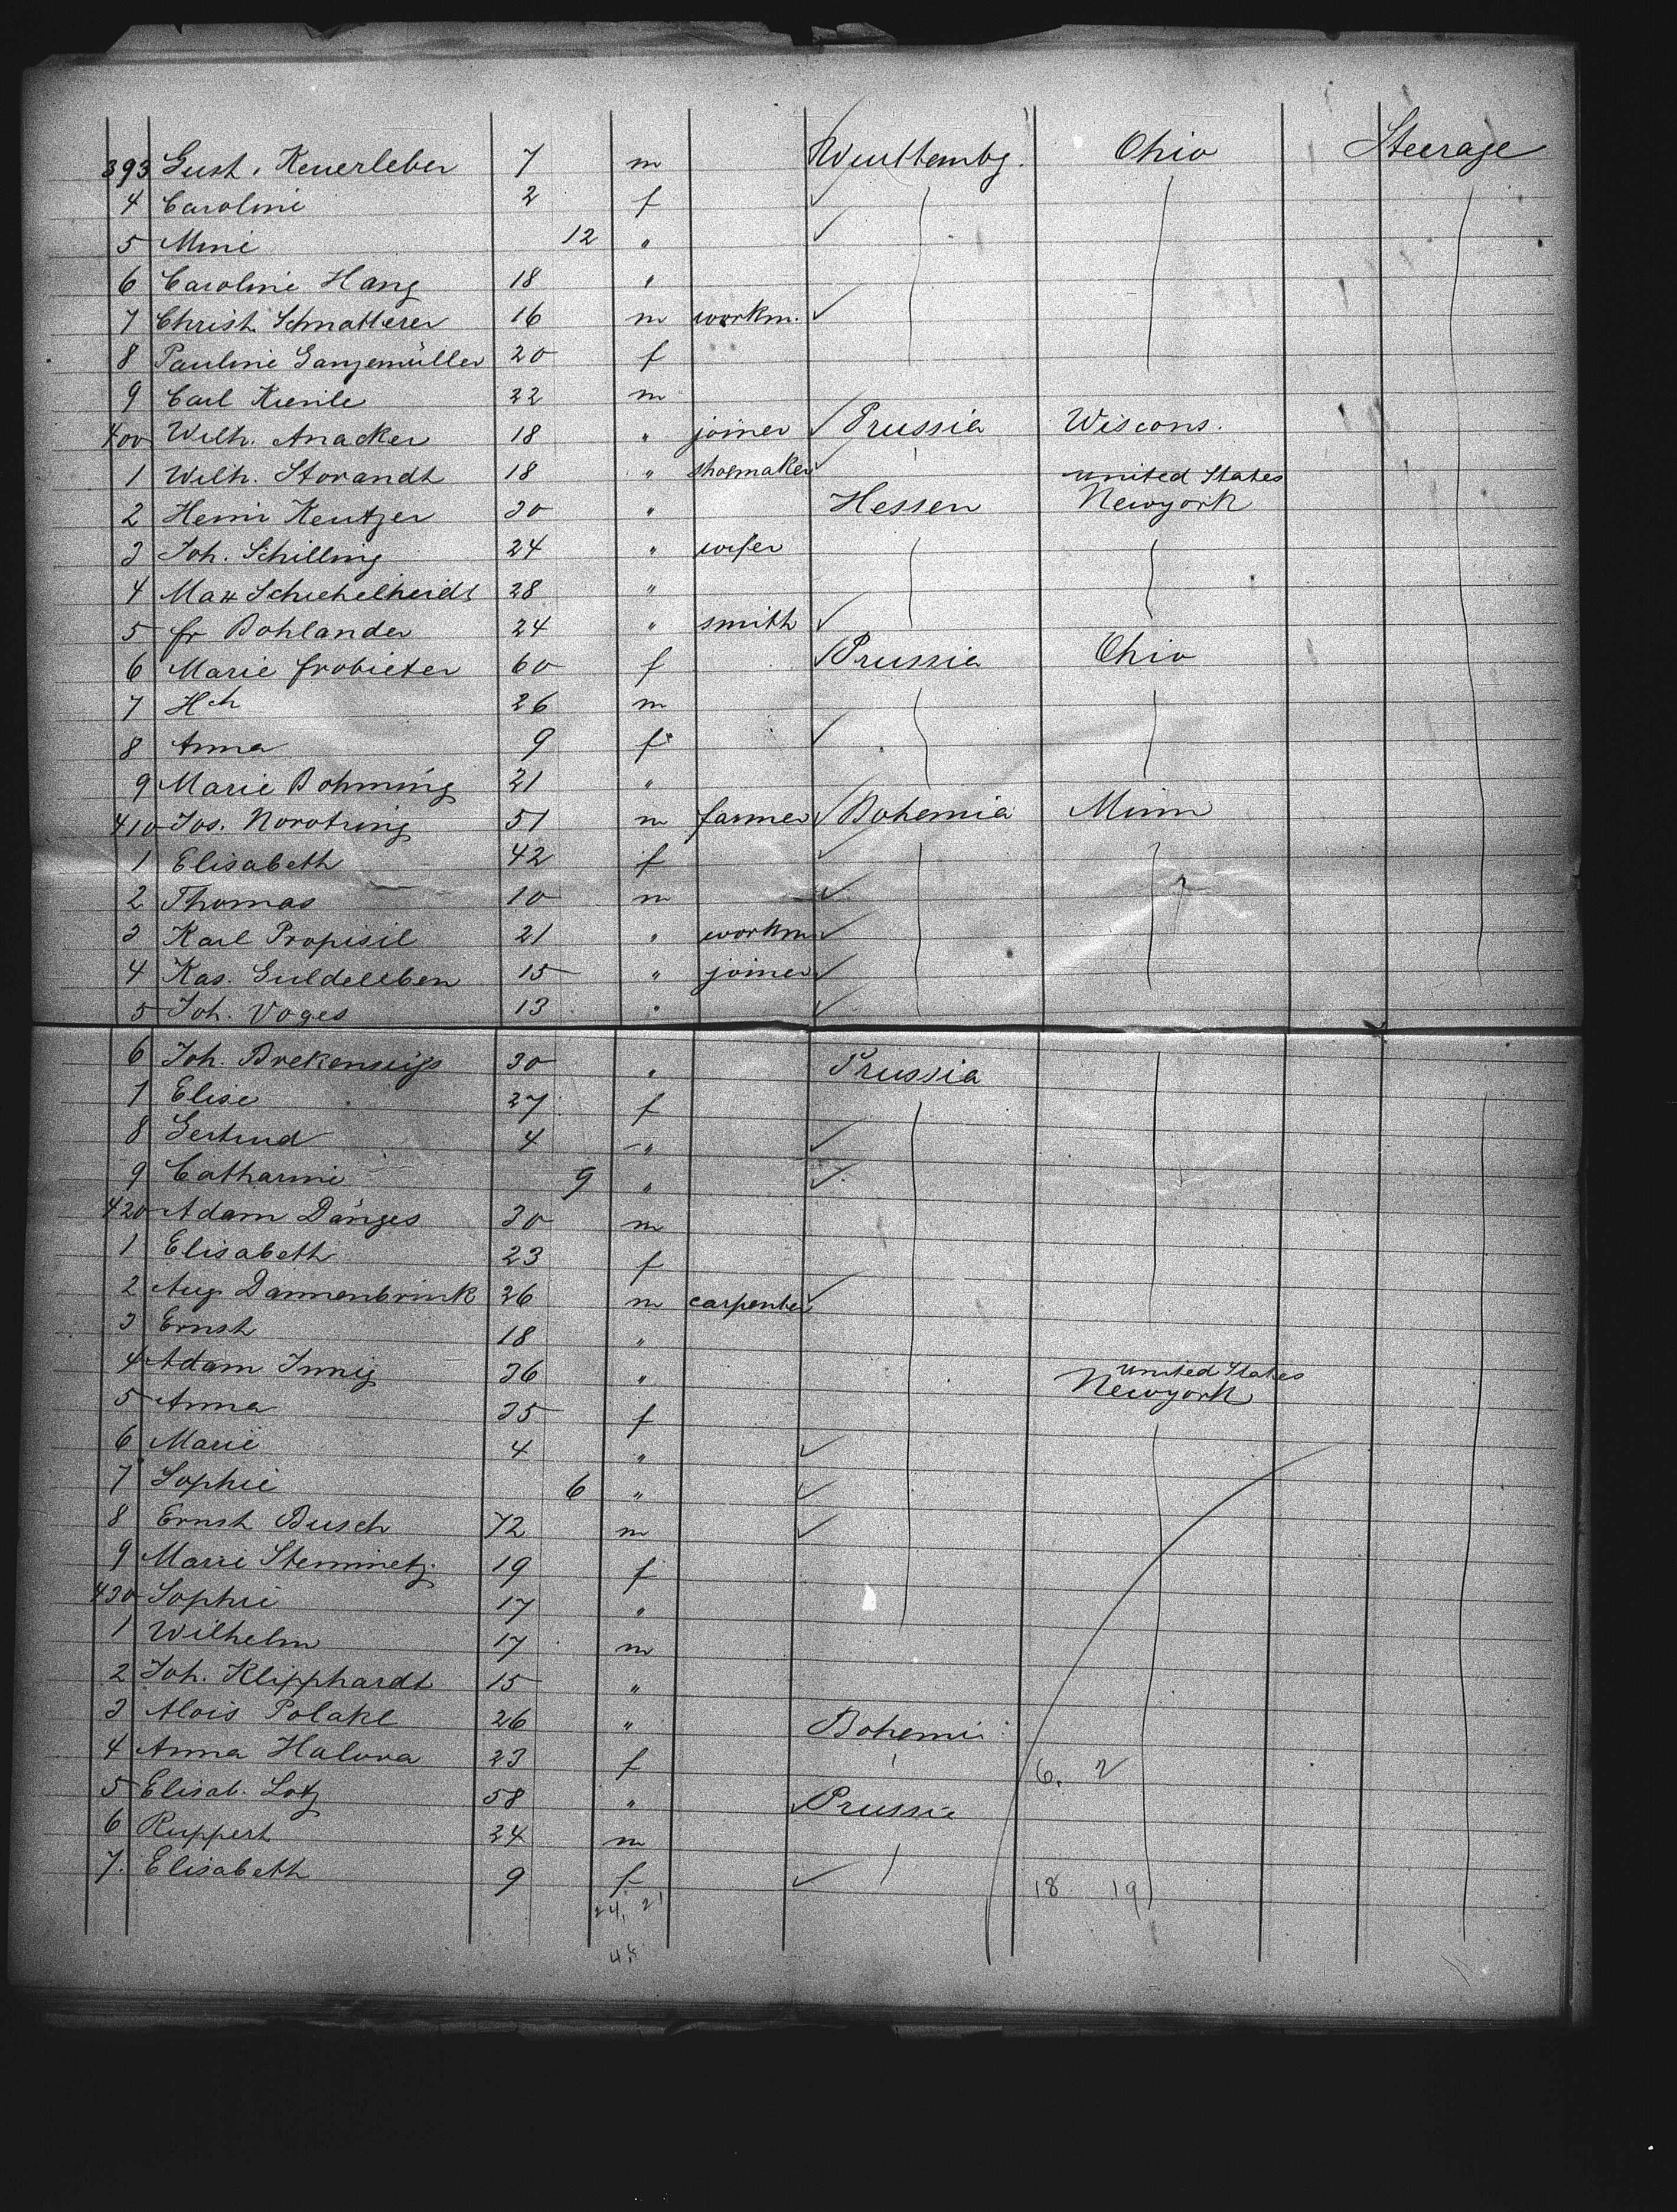 393 Gust. Keuerleber 7 m Wurttembg. Ohio Steerage
4 Caroline 2 f
5 Mine 12 "
6 Caroline Hang 18 "
7 Christ. Schmatterer 16 m workm.
8 Pauline Ganzemüller 20 f
9 Carl Kienle 22 m
400 Wilh. Anacker 18 " joiner Prussia Wiscons.
1 Wilh. Storandt 18 " shoemaker
United States
2 Henri Keutzer 30 " Hessen Newyork
3 Joh. Schilling 24 "
4 Max 28 "
5 fr Bohlander 24 " smith
6 Marie frobieter 60 f Prussia Ohio
7 Hch 26 m
8 Anna 9 f
9 Marie Bohming 21 "
410 Jos. 51 m farmer Bohemia Minn
1 Elisabeth 42 f
2 Thomas 10 m
3 Karl Propisil 21 " workm
4 Kas. Guldeleben 15 " joiner
5 Joh. Voges 13 "
6 Joh. 30 " Prussia
7 Elise 27 f
8 Gertrud 4 "
9 Catharine 9 "
420 Adam Dänges 30 m
1 Elisabeth 23 f
2 Aug. Dannenbrink 26 m carpenter
3 Ernst 18 "
United States
4 Adam Innig 36 " Newyork
5 Anna 35 f
6 Marie 4 "
7 Sophie 6 "
8 Ernst Busch 72 m
9 Marie Stemmetz 19 f
430 Sophie 17 "
1 Wilhelm 17 m
2 Joh. Klipphardt 15 "
3 Alois Polakl 26 " Bohemi
4 Anna Halova 23 f 6. 2
5 Elisab. Lotz 58 " Prussia
6 Ruppert 24 m
7. Elisabeth 9 f 18 19
24, 21